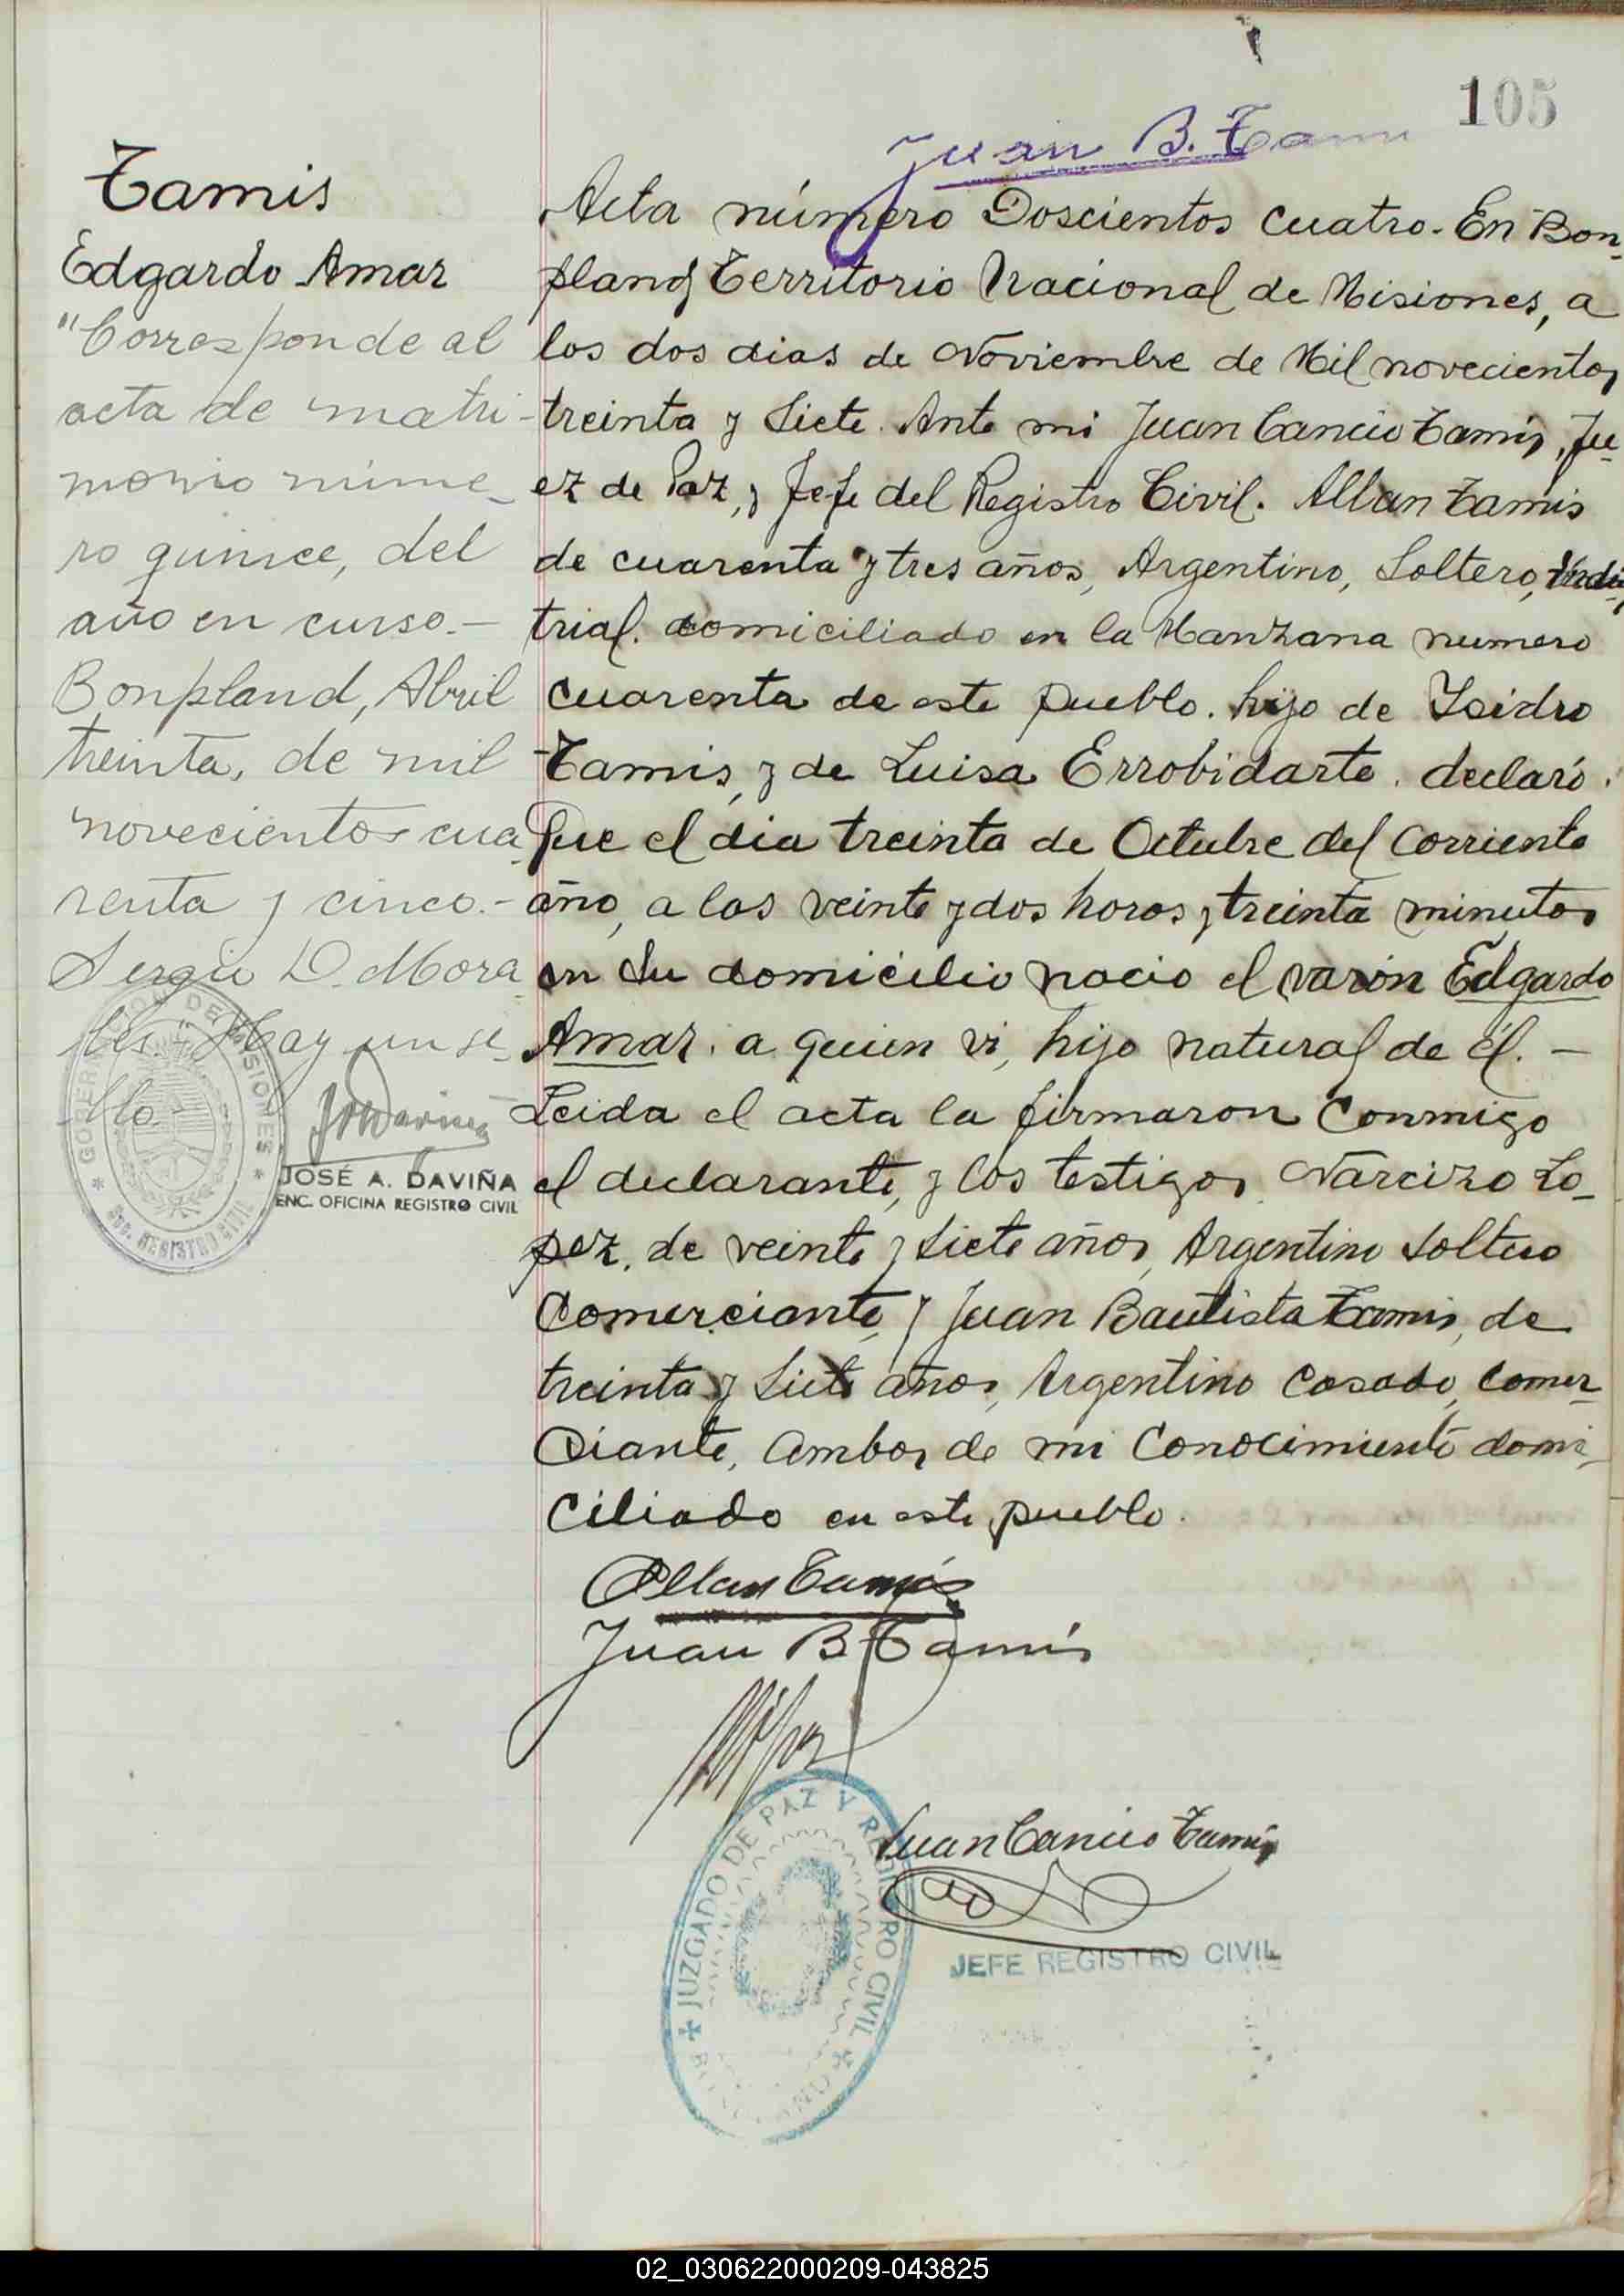 105
Juan B. Tami
Tamis
Edgardo Amar
"Corresponde al
acta de matri-
monio núme-
ro quince, del
año en curso.-
Bonpland, Abril
treinta, de mil
novecientos cua-
renta y cinco.-
Sergio D. Mora-
les.- Hay un se-
llo.-
GOBERNACION DE MISIONES
REGISTRO CIVIL
JOSÉ A. DAVIÑA
ENC. OFICINA REGISTRO CIVIL
Acta número Doscientos cuatro. En Bon-
pland Territorio Nacional de Misiones, a
los dos dias de Noviembre de Mil novecientos
treinta y Siete. Ante mi Juan Cancio Tamis, Ju-
ez de Paz, y Jefe del Registro Civil. Allan Tamis
de cuarenta y tres años, Argentino, Soltero, Indus-
trial. domiciliado en la Manzana numero
cuarenta de este pueblo. hijo de Isidro
Tamis, y de Luisa Errobidarte. declaró.
Que el dia treinta de Octubre del corriente
año, a las veinte y dos horas y treinta minutos
en su domicilio nacio el varón Edgardo
Amar. a quien vi, hijo natural de él. —
Leida el acta la firmaron conmigo
el declarante, y los testigos Narcizo Lo-
pez, de veinte y siete años, Argentino Soltero
Comerciante, y Juan Bautista Tamis, de
treinta y siete años, Argentino Casado, Comer-
ciante, ambos de mi Conocimiento domi-
ciliado en este pueblo.
Allan Tamis
Juan B. Tamis
Juan Cancio Tamis
JUZGADO DE PAZ Y REGISTRO CIVIL
JEFE REGISTRO CIVIL
02_030622000209-043825